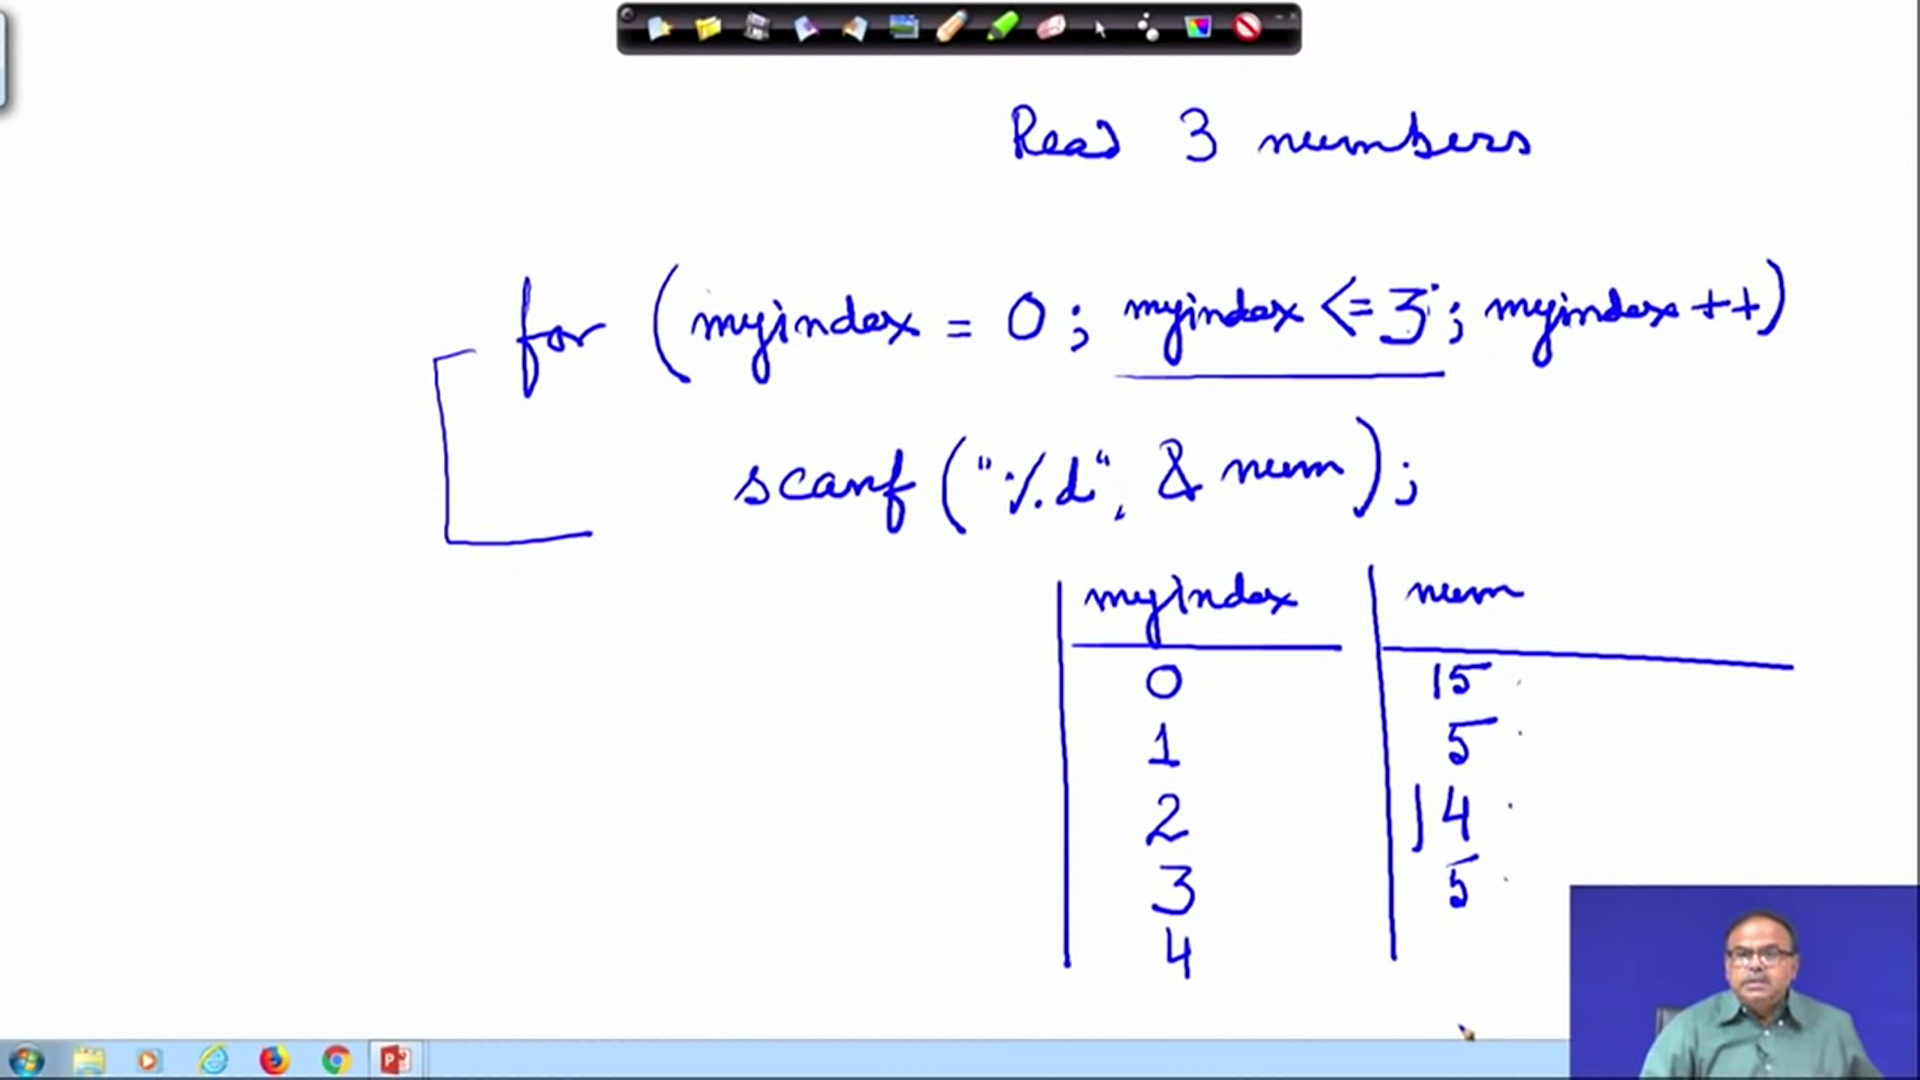 Read 3 numbers
for (myindex = 0; myindex <= 3; myindex ++)
scanf ("%d", & num);
myindex num
0 15
1 5
2 14
3 5
4